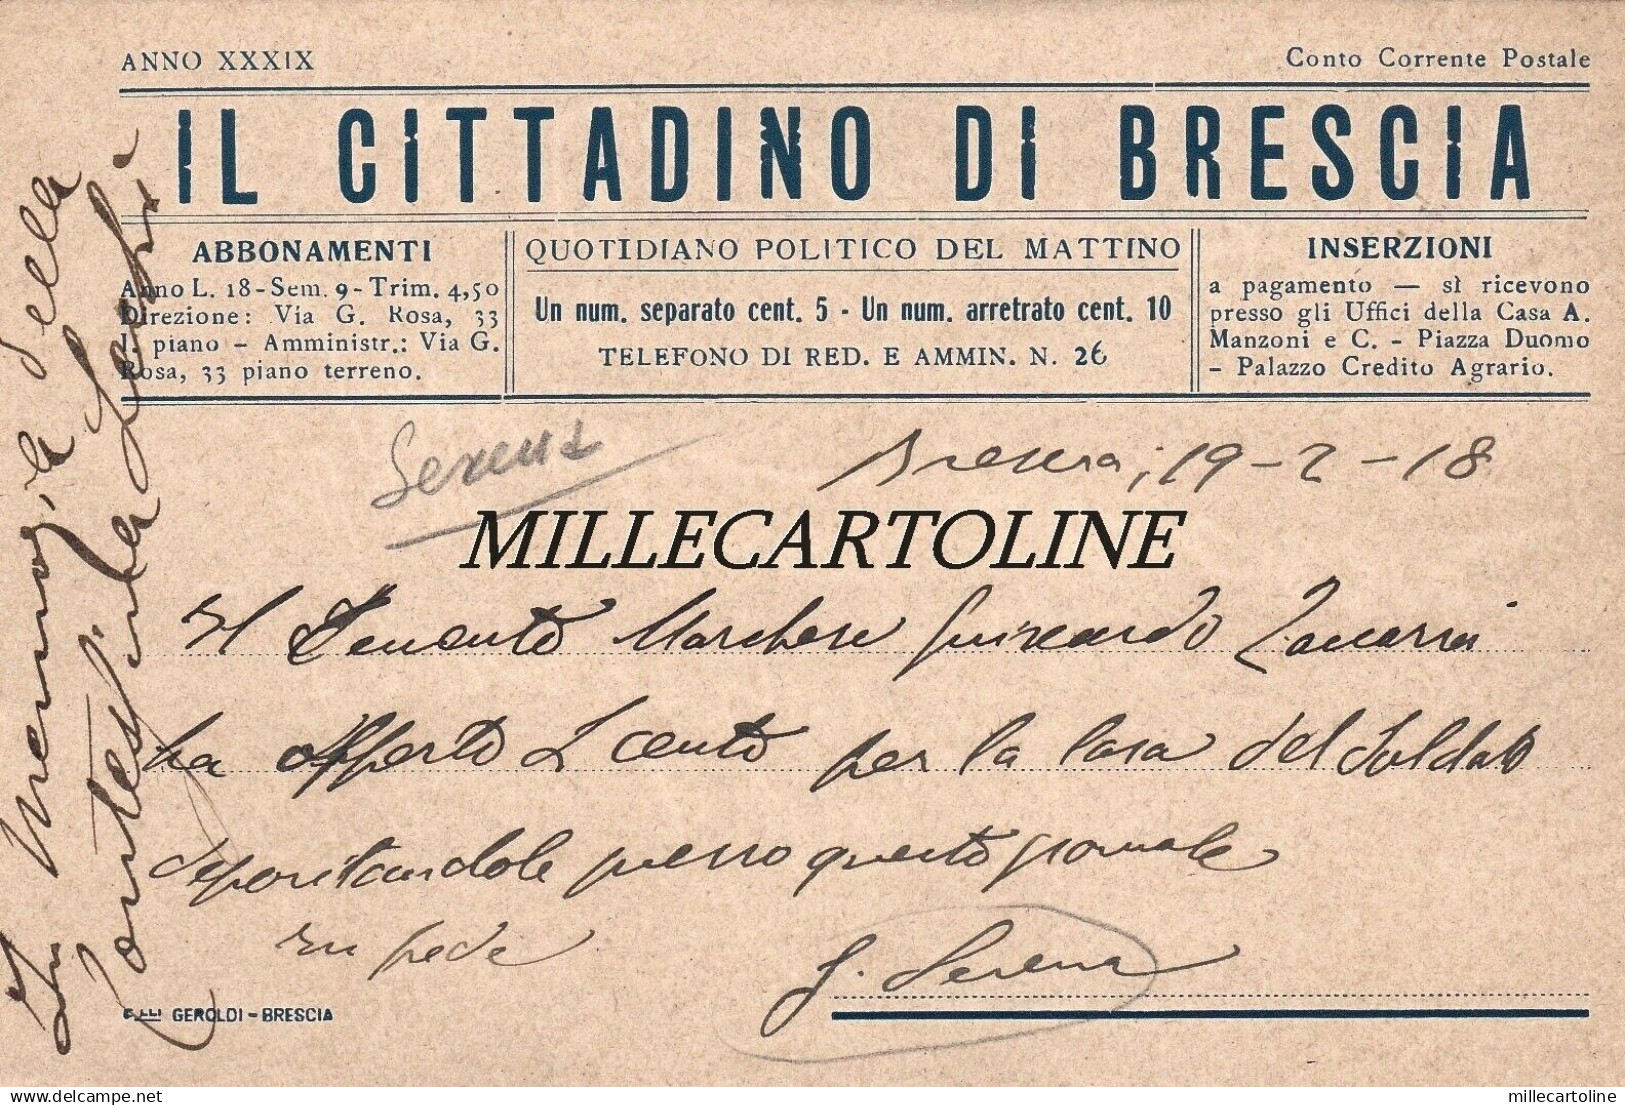 ANNO XXXIX
Conto Corrente Postale
IL CITTADINO DI BRESCIA
ABBONAMENTI
Anno L. 18 - Sem. 9 - Trim. 4,50
Direzione: Via G. Rosa, 33
I. piano - Amministr.: Via G.
Rosa, 33 piano terreno.
QUOTIDIANO POLITICO DEL MATTINO
Un num. separato cent. 5 - Un num. arretrato cent. 10
TELEFONO DI RED. E AMMIN. N. 26
INSERZIONI
a pagamento — sì ricevono
presso gli Uffici della Casa A.
Manzoni e C. - Piazza Duomo
- Palazzo Credito Agrario.
Serena
Brescia, 19-2-18
MILLECARTOLINE
Il Tenente Marchese Guiscardo
ha offerto L cento per la Casa del Soldato
depositandole presso questo giornale
In fede
G. Serena
F.LLI GEROLDI - BRESCIA
In memoria della
Contessina
delcampe.net
millecartoline